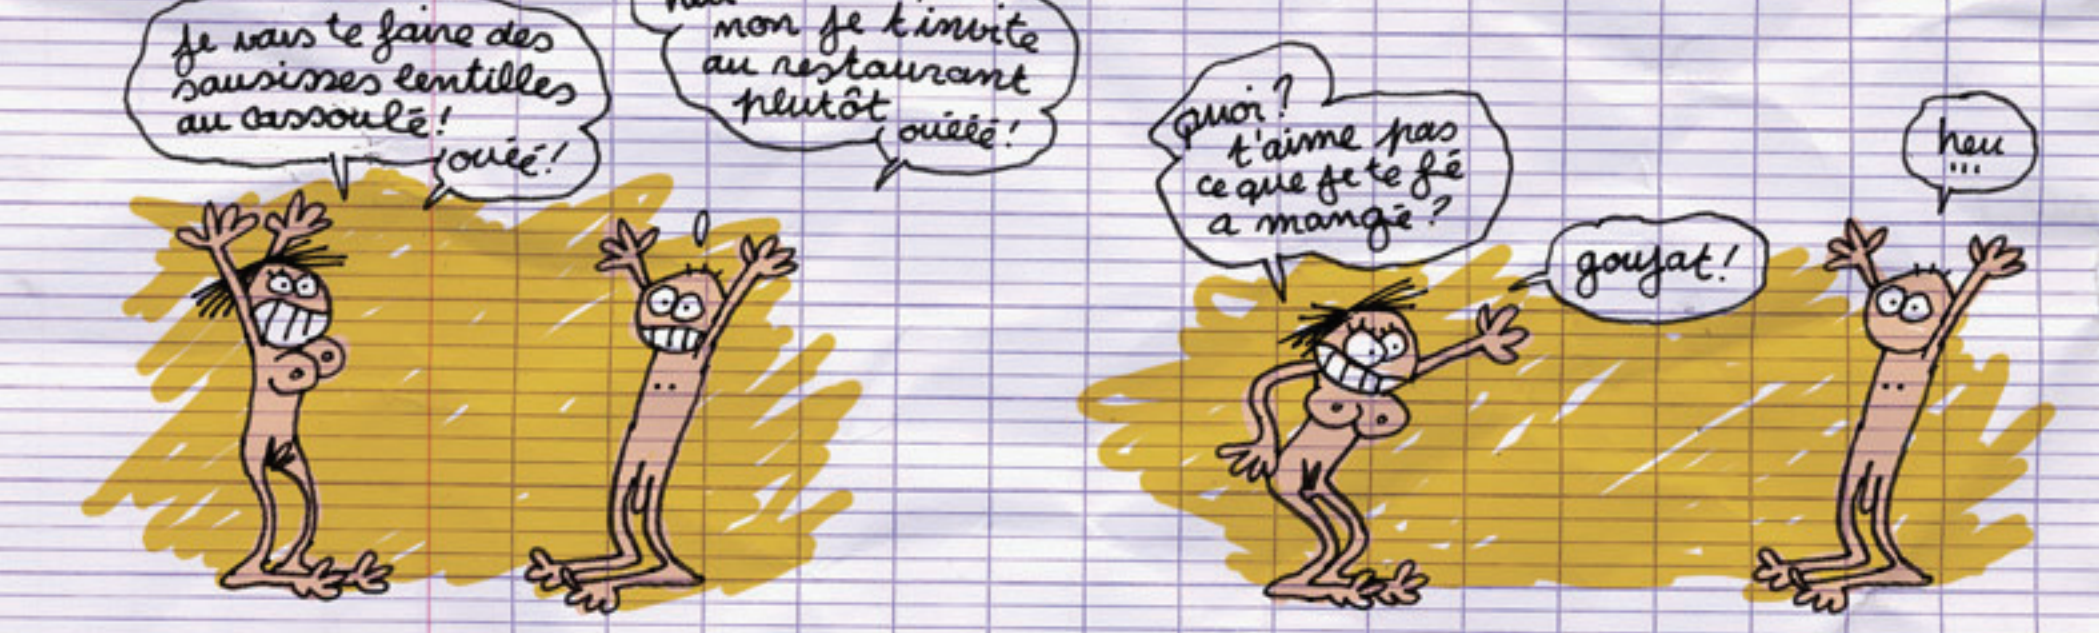 je vais te faire des
sausisses lentilles
au cassoulé!
ouéé!
non je t'invite
au restaurant
plutôt
ouééé!
quoi?
t'aime pas
ce que je te fé
a mangé?
goujat!
heu
...